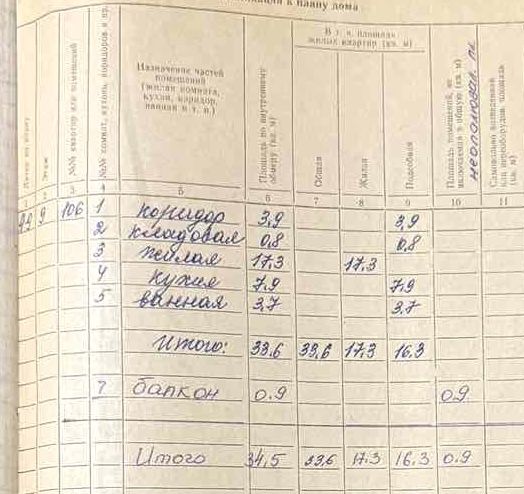 к плану дома
Литер по плану
Этаж
№№ квартир или помещений
№№ комнат, кухонь, коридоров и пр.
Назначение частей помещений (жилая комната, кухня, коридор, ванная и т. п.)
Площадь по внутреннему обмеру (кв. м)
В т. ч. площадь жилых квартир (кв. м)
Общая
Жилая
Подсобная
Площадь помещений, не включаемая в общую (кв. м) неотапливаем. пл.
Самовольно возведенная или переоборудов. площадь (кв. м)
1 2 3 4 5 6 7 8 9 10 11
9 106 1 коридор 3,9 3,9
2 кладовая 0,8 0,8
3 жилая 17.3 17.3
4 кухня 7.9 7.9
5 ванная 3.7 3.7
Итого: 33,6 33,6 17.3 16.3
? балкон 0.9 0.9
Итого 34,5 33,6 17.3 16.3 0.9